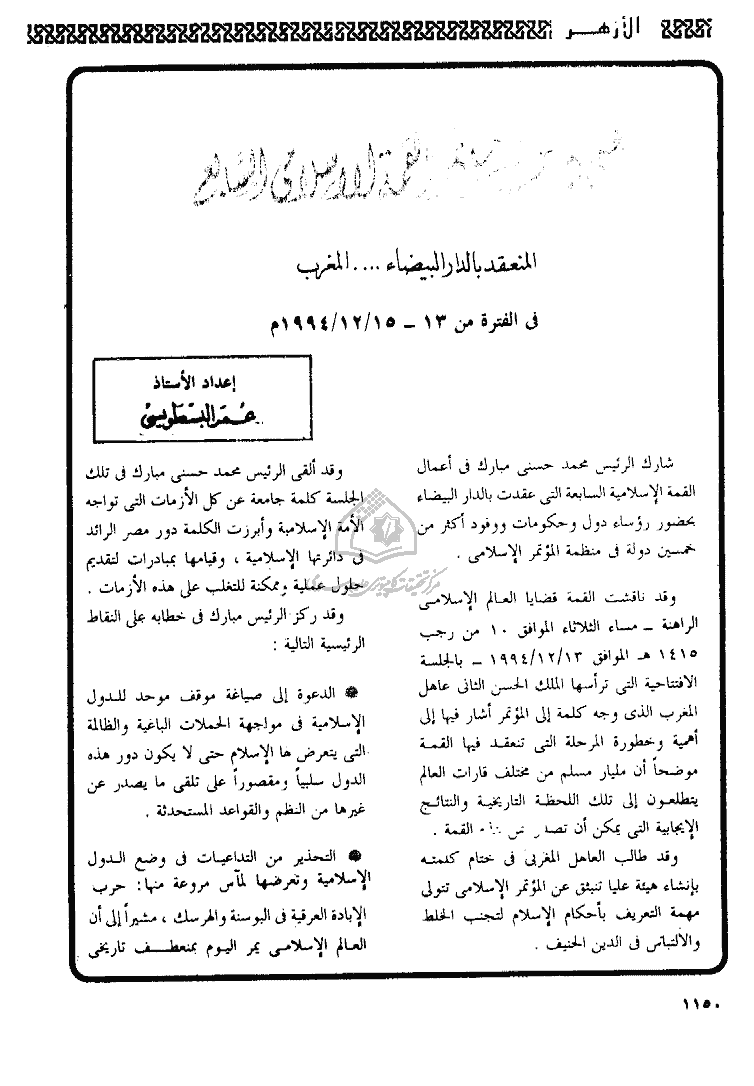 الأزهر
القمة الإسلامي السابع
المنعقد بالدار البيضاء .... المغرب
فى الفترة من ١٣ – ١٩٩٤/١٢/١٥م
إعداد الأستاذ
عمر البسطويسى
شارك الرئيس محمد حسنى مبارك فى أعمال
القمة الإسلامية السابعة التى عقدت بالدار البيضاء
بحضور رؤساء دول وحكومات ووفود أكثر من
خمسين دولة فى منظمة المؤتمر الإسلامى .
وقد ناقشت القمة قضايا العالم الإسلامى
الراهنة – مساء الثلاثاء الموافق ١٠ من رجب
١٤١٥ هـ الموافق ١٩٩٤/١٢/١٣ – بالجلسة
الافتتاحية التى ترأسها الملك الحسن الثانى عاهل
المغرب الذى وجه كلمة إلى المؤتمر أشار فيها إلى
أهمية وخطورة المرحلة التى تنعقد فيها القمة
موضحاً أن مليار مسلم من مختلف قارات العالم
يتطلعون إلى تلك اللحظة التاريخية والنتائج
الإيجابية التى يمكن أن تصدر القمة .
وقد طالب العاهل المغربى فى ختام كلمته
بإنشاء هيئة عليا تنبثق عن المؤتمر الإسلامى تتولى
مهمة التعريف بأحكام الإسلام لتجنب الخلط
والالتباس فى الدين الحنيف .
وقد ألقى الرئيس محمد حسنى مبارك فى تلك
الجلسة كلمة جامعة عن كل الأزمات التى تواجه
الأمة الإسلامية وأبرزت الكلمة دور مصر الرائد
فى دائرتها الإسلامية ، وقيامها بمبادرات لتقديم
حلول عملية وممكنة للتغلب على هذه الأزمات .
وقد ركز الرئيس مبارك فى خطابه على النقاط
الرئيسية التالية :
● الدعوة إلى صياغة موقف موحد للدول
الإسلامية فى مواجهة الحملات الباغية والظالمة
التى يتعرض ها الإسلام حتى لا يكون دور هذه
الدول سلبياً ومقصوراً على تلقى ما يصدر عن
غيرها من النظم والقواعد المستحدثة .
● التحذير من التداعيات فى وضع الدول
الإسلامية وتعرضها لمآس مروعة منها : حرب
الإبادة العرقية فى البوسنة والهرسك ، مشيراً إلى أن
العالم الإسلامى يمر اليوم بمنعطف تاريخى
١١٥٠